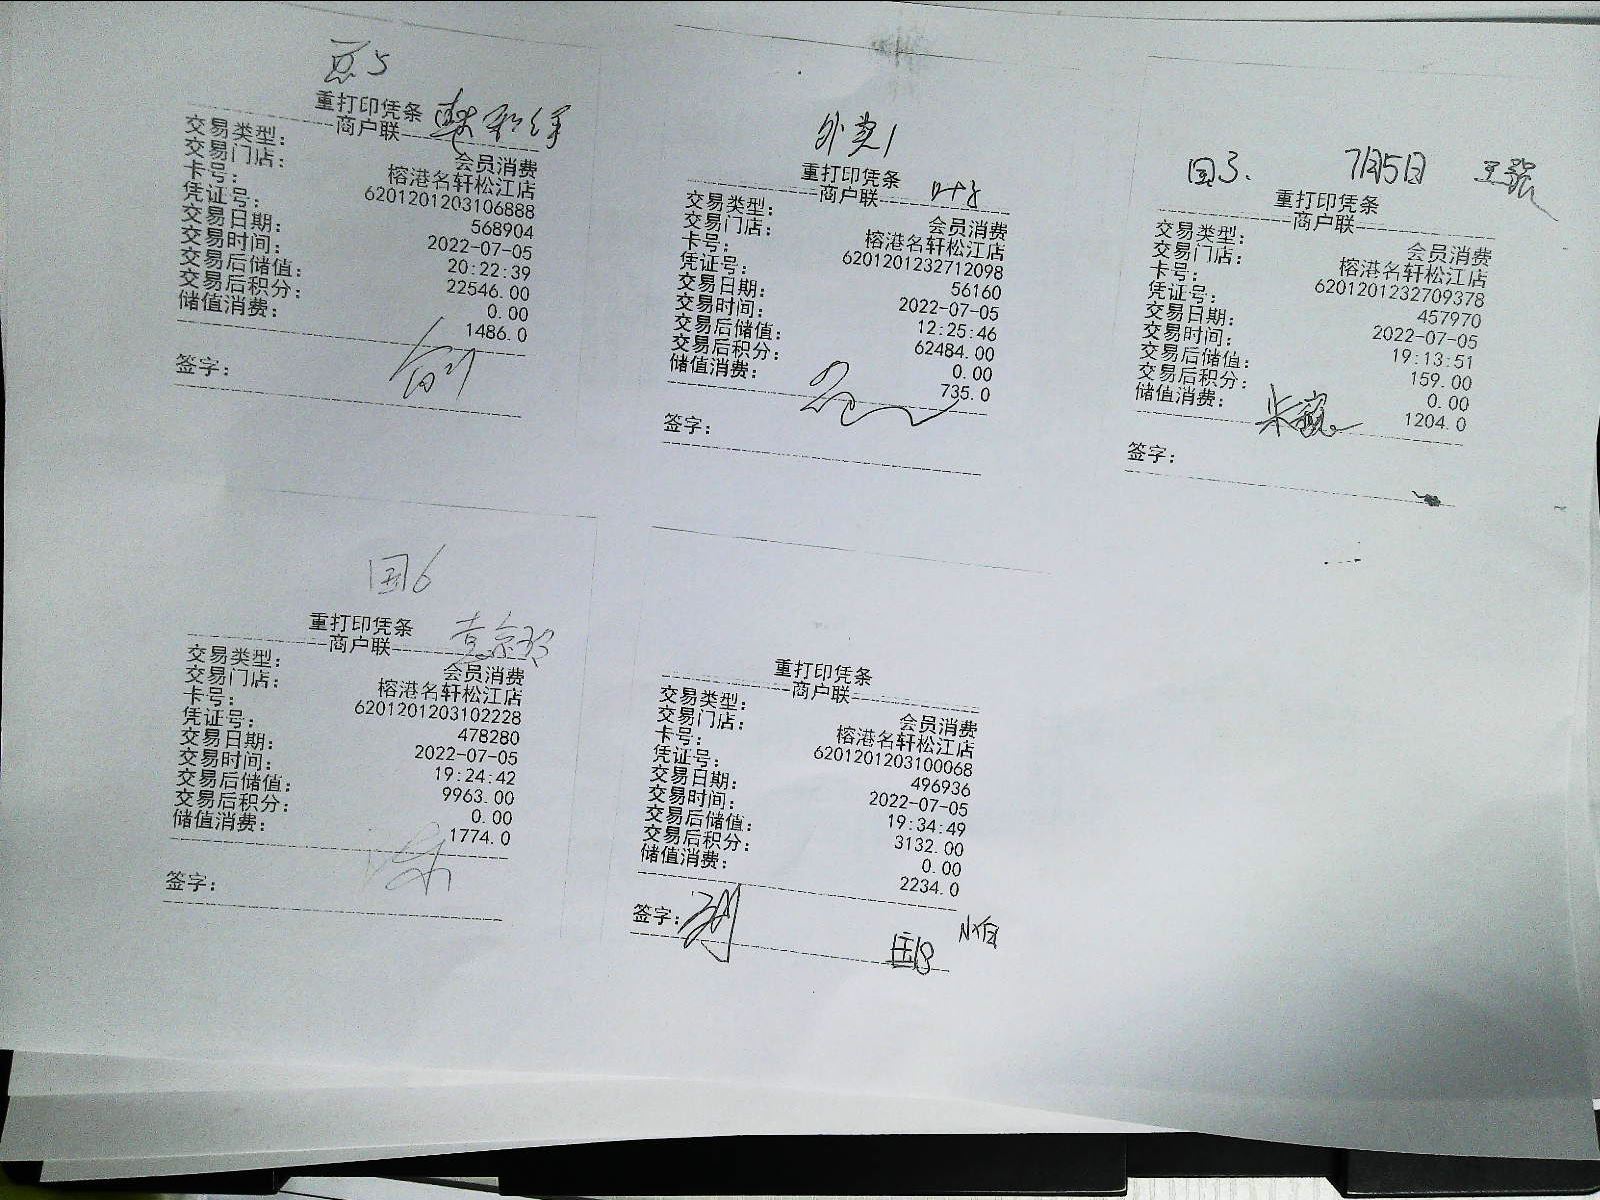 重打印凭条
商户联
交易类型: 会员消费
交易门店: 榕港名轩松江店
卡号: 6201201203106888
凭证号: 568904
交易日期: 2022-07-05
交易时间: 20:22:39
交易后储值: 22546.00
交易后积分: 0.00
储值消费: 1486.0
签字:
外卖1
重打印凭条
商户联
叶子
交易类型: 会员消费
交易门店: 榕港名轩松江店
卡号: 6201201232712098
凭证号: 56160
交易日期: 2022-07-05
交易时间: 12:25:46
交易后储值: 62484.00
交易后积分: 0.00
储值消费: 735.0
签字:
国3. 7月5日
重打印凭条
商户联
交易类型: 会员消费
交易门店: 榕港名轩松江店
卡号: 6201201232709378
凭证号: 457970
交易日期: 2022-07-05
交易时间: 19:13:51
交易后储值: 159.00
交易后积分: 0.00
储值消费: 1204.0
签字:
国6
重打印凭条
商户联
交易类型: 会员消费
交易门店: 榕港名轩松江店
卡号: 6201201203102228
凭证号: 478280
交易日期: 2022-07-05
交易时间: 19:24:42
交易后储值: 9963.00
交易后积分: 0.00
储值消费: 1774.0
签字:
重打印凭条
商户联
交易类型: 会员消费
交易门店: 榕港名轩松江店
卡号: 6201201203100068
凭证号: 496936
交易日期: 2022-07-05
交易时间: 19:34:49
交易后储值: 3132.00
交易后积分: 0.00
储值消费: 2234.0
签字:
国18